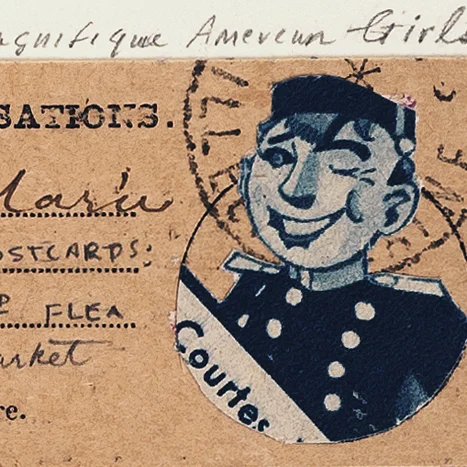 agnifique Amereun Girls
SATIONS.
Marie
OSTCARDS:
FLEA
arket
re.
Courtes